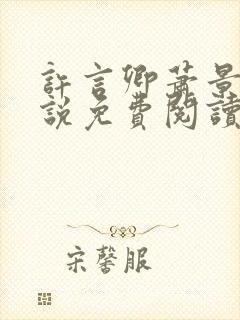 許言卿蕭景
說免費閱讀
宋馨服